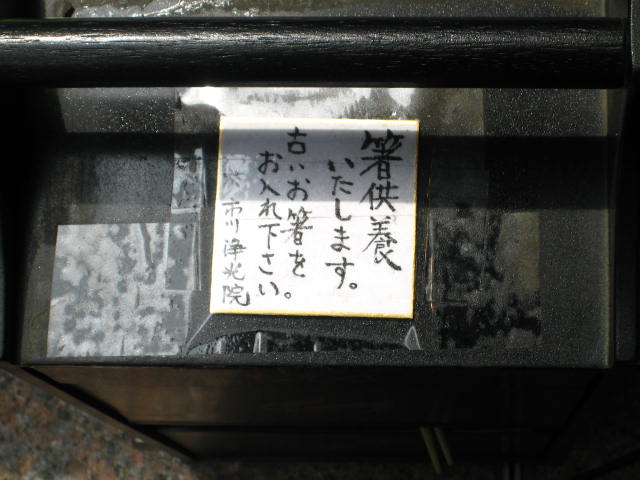 箸供養
いたします。
古いお箸を
お入れ下さい。
市川浄光院